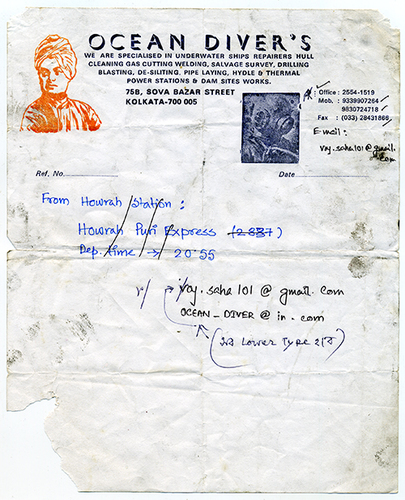 OCEAN DIVER'S
WE ARE SPECIALISED IN UNDERWATER SHIPS REPAIRERS HULL
CLEANING GAS CUTTING WELDING, SALVAGE SURVEY, DRILLING
BLASTING, DE-SILITING. PIPE LAYING, HYDLE & THERMAL
POWER STATIONS & DAM SITES WORKS.
75B, SOVA BAZAR STREET
KOLKATA-700 005
Office : 2554-1519
Mob. : 9339907264
9830724718
Fax : (033) 28431866
E-mail :
vry.saha101@gmail.
com
Ref. No.
Date
From Howrah Station :
Howrah Puri Express (2837)
Dep. time → 20:55
vry.saha101@gmail.com
OCEAN_DIVER@in.com
(সব Lower Type হবে)